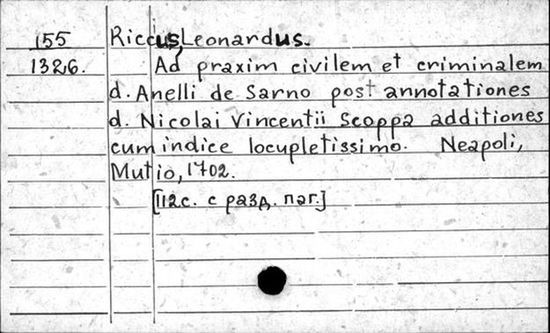 155 Riccus, Leonardus.
1326. Ad praxim civilem et criminalem
d. Anelli de Sarno post annotationes
d. Nicolai Vincentii Scoppa additiones
cum indice locupletissimo. Neapoli,
Mutio, 1702.
[112с. с разд. паг.]